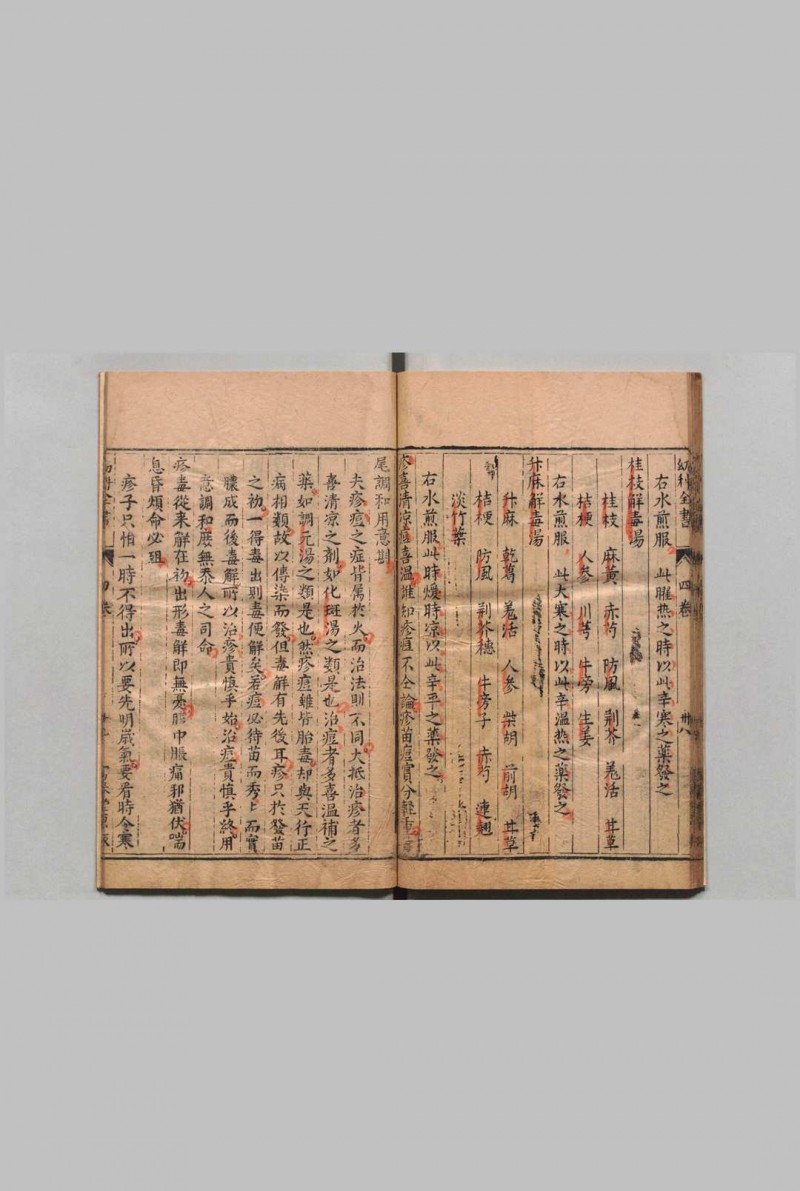 幼科全書 四卷 卅八
右水煎服 此腥热之時以此辛寒之藥發之
桂枝解毒湯
桂枝 麻黃 赤芍 防風 荆芥 羗活 甘草
桔梗 人参 川芎 牛旁 生姜
右水煎服 此大寒之時以此辛溫热之藥發之
升麻解毒湯
升麻 乾葛 羗活 人参 柴胡 前胡 甘草
桔梗 防風 荆芥穗 牛旁子 赤芍 連翹
淡竹葉
右水煎服此時煖時凉以此辛平之藥發之
疹喜清凉痘喜溫誰知疹痘不仝論疹苗痘實分輕重
尾調和用意斟
夫疹痘之症皆属於火而治法則不同大抵治疹者多
喜清凉之劑如化斑湯之類是也治痘者多喜溫補之
藥如調元湯之類是也然疹痘雖皆胎毒却與天行正
病相類故以傳染而發但毒解有先後耳疹只於發苗
之初一得毒出則毒便解矣若痘必待苗而秀秀而實
膿成而後毒解所以治疹貴慎乎始治痘貴慎乎終用
意調和庶無忝人之司命
疹毒從来解在初出形毒解即無憂腹中脹痛邪猶伏喘
息昏煩命必殂
疹子只怕一時不得出所以要先明歲氣要看時令寒